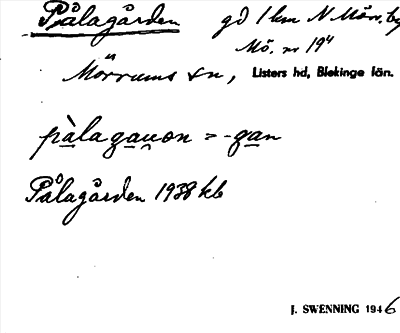 Pålagården gd 1 km N Mörr. by
Mö. nr 19⁴
Mörrums sn, Listers hd, Blekinge län.
pàlagau̯on = -gan
Pålagården 1938 kb
J. SWENNING 1946